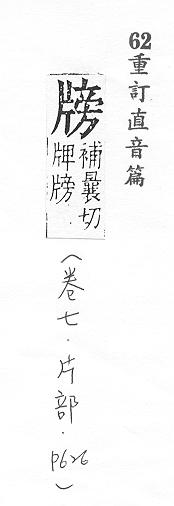 62重訂直音篇
牓
補曩切
牌牓
（卷七．片部．p626）